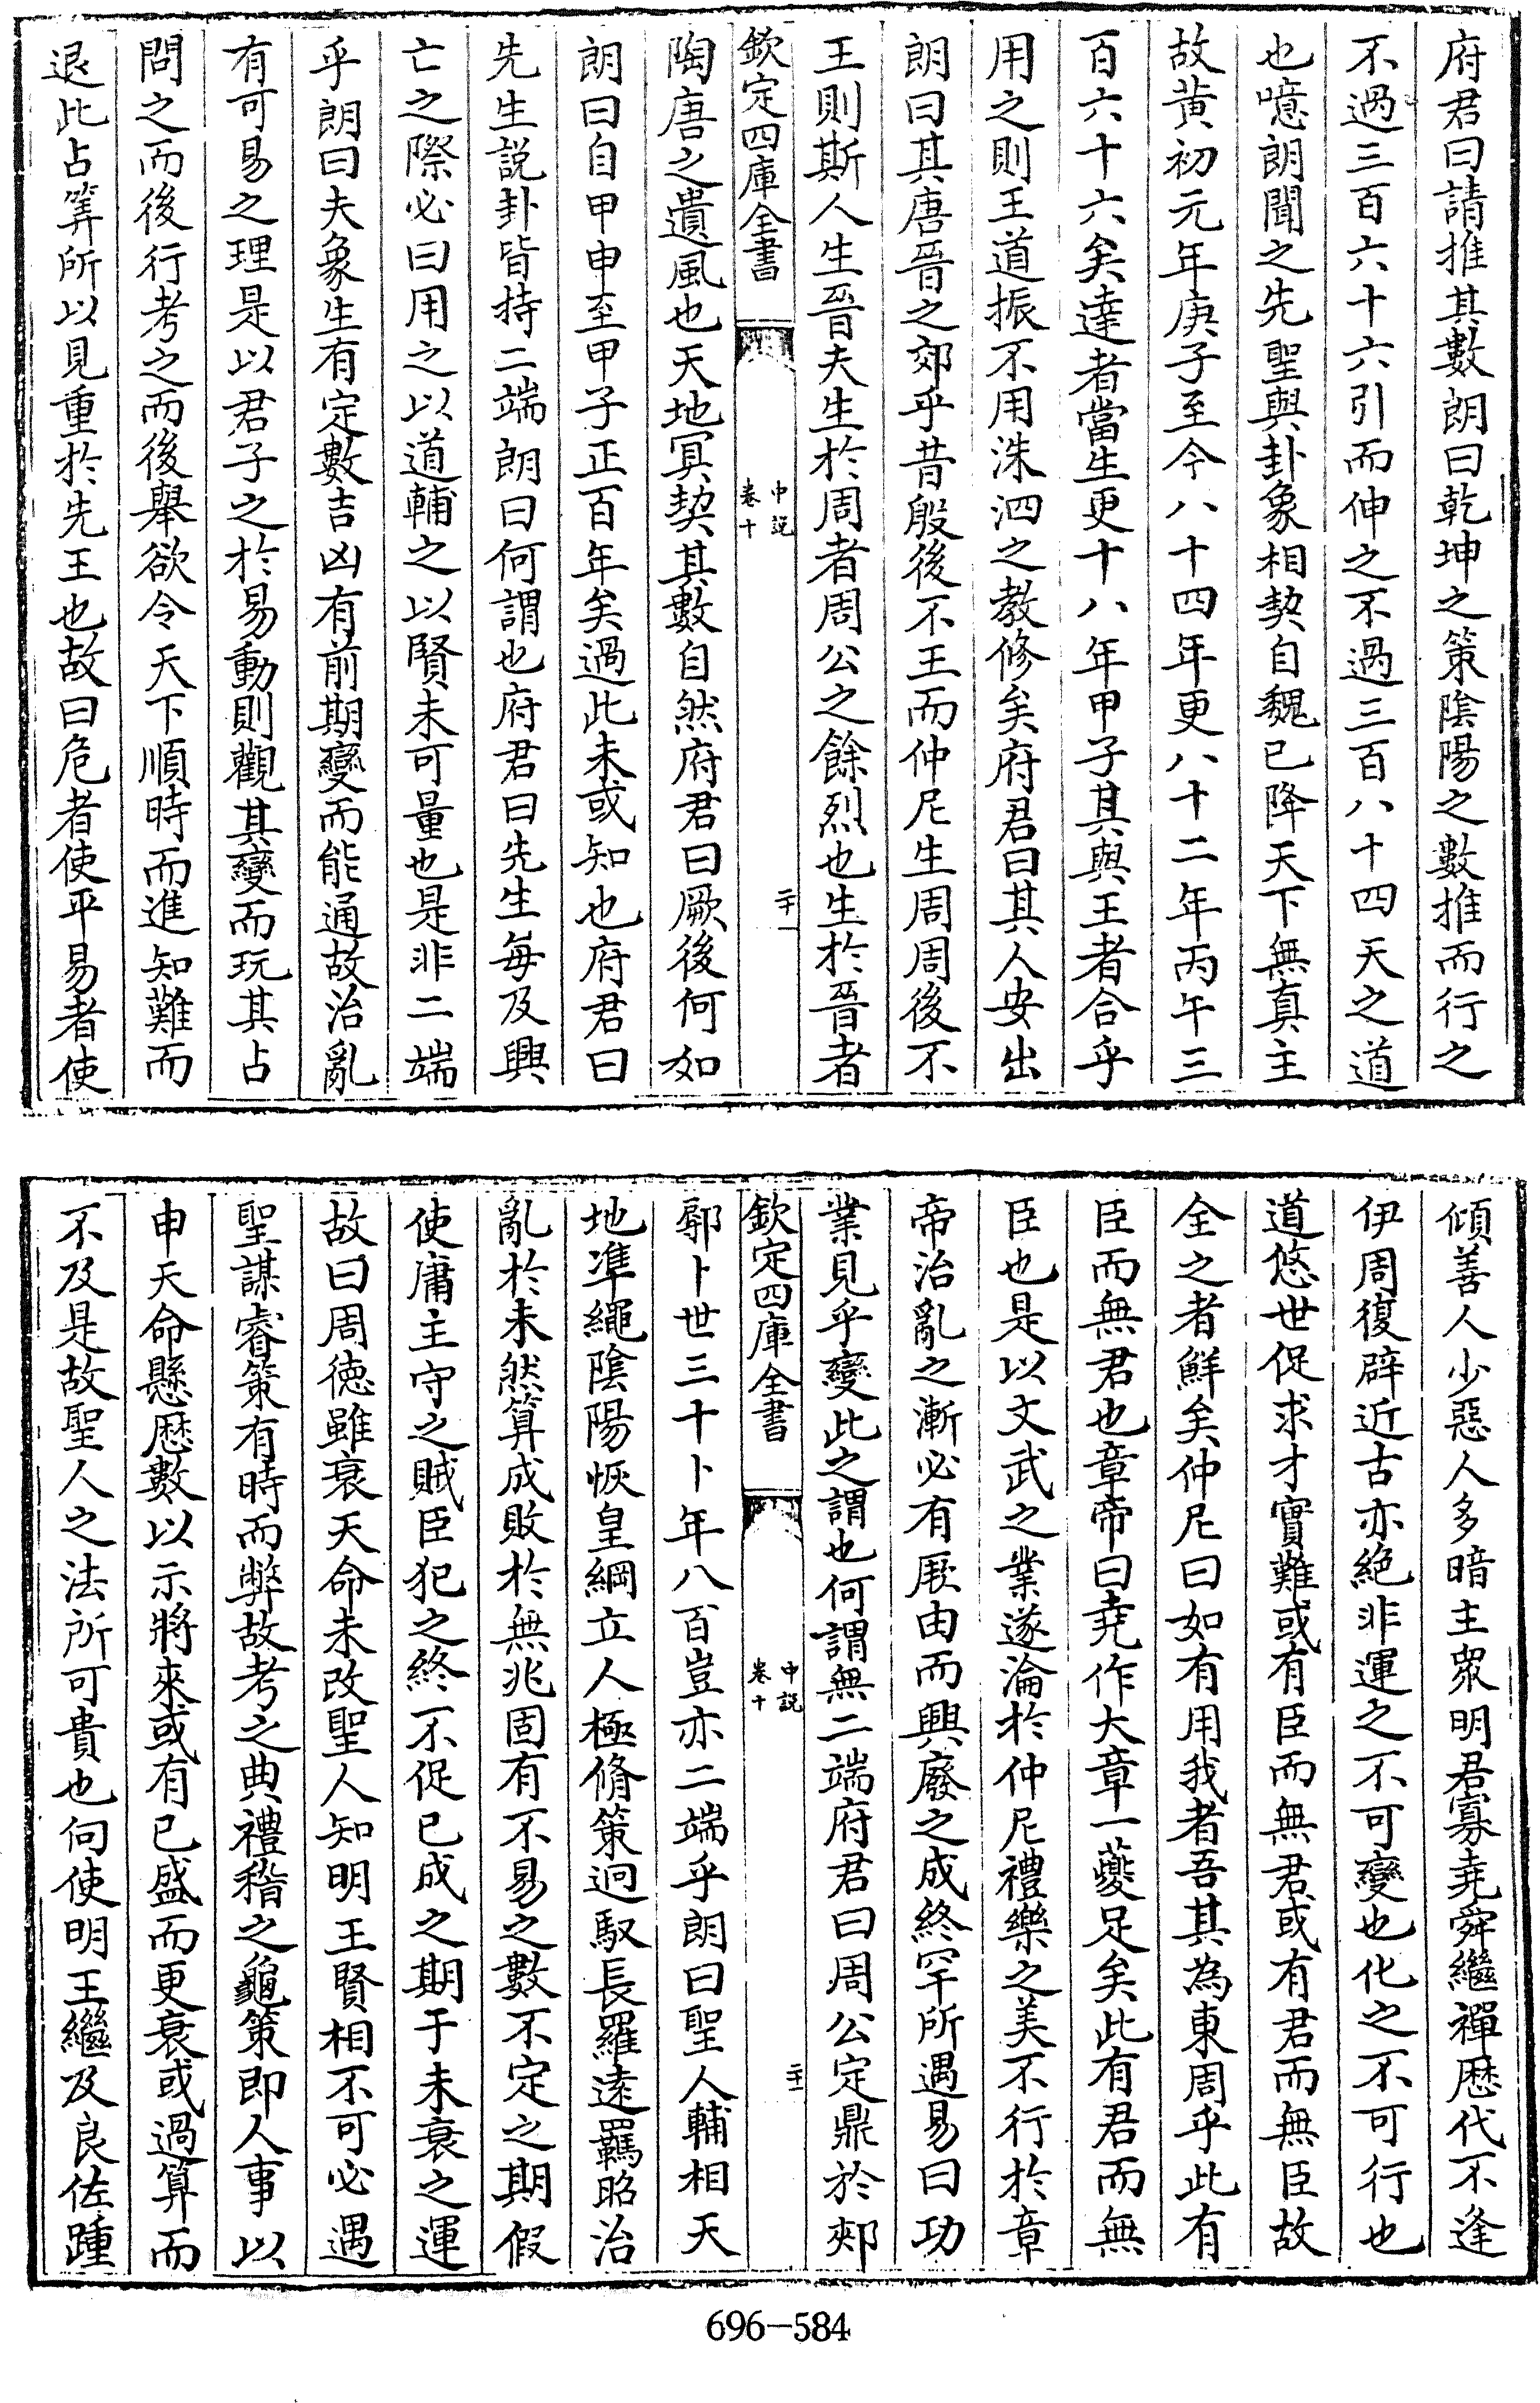 府君曰請推其數朗曰乾坤之策陰陽之數推而行之
不過三百六十六引而伸之不過三百八十四天之道
也噫朗聞之先聖與卦象相契自魏已降天下無真主
故黄初元年庚子至今八十四年更八十二年丙午三
百六十六矣達者當生更十八年甲子其與王者合乎
用之則王道振不用洙泗之教修矣府君曰其人安出
朗曰其唐晉之郊乎昔殷後不王而仲尼生周周後不
王則斯人生晉夫生於周者周公之餘烈也生於晉者
欽定四庫全書
中説
卷十
二十一
陶唐之遺風也天地冥契其數自然府君曰厥後何如
朗曰自甲申至甲子正百年矣過此未或知也府君曰
先生説卦皆持二端朗曰何謂也府君曰先生每及興
亡之際必曰用之以道輔之以賢未可量也是非二端
乎朗曰夫象生有定數吉凶有前期變而能通故治亂
有可易之理是以君子之於易動則觀其變而玩其占
問之而後行考之而後舉欲令天下順時而進知難而
退此占筭所以見重於先王也故曰危者使平易者使
傾善人少惡人多暗主衆明君寡堯舜繼禪歴代不逢
伊周復辟近古亦絶非運之不可變也化之不可行也
道悠世促求才實難或有臣而無君或有君而無臣故
全之者鮮矣仲尼曰如有用我者吾其為東周乎此有
臣而無君也章帝曰堯作大章一夔足矣此有君而無
臣也是以文武之業遂淪於仲尼禮樂之美不行於章
帝治亂之漸必有厥由而興廢之成終罕所遇易曰功
業見乎變此之謂也何謂無二端府君曰周公定鼎於郟
欽定四庫全書
中説
卷十
二十一
鄏卜世三十卜年八百豈亦二端乎朗曰聖人輔相天
地凖繩陰陽恢皇綱立人極脩策迥馭長羅遠羈昭治
亂於未然算成敗於無兆固有不易之數不定之期假
使庸主守之賊臣犯之終不促已成之期于未衰之運
故曰周徳雖衰天命未改聖人知明王賢相不可必遇
聖謀睿策有時而弊故考之典禮稽之龜策即人事以
申天命懸歴數以示將來或有已盛而更衰或過算而
不及是故聖人之法所可貴也向使明王繼及良佐踵
696-584